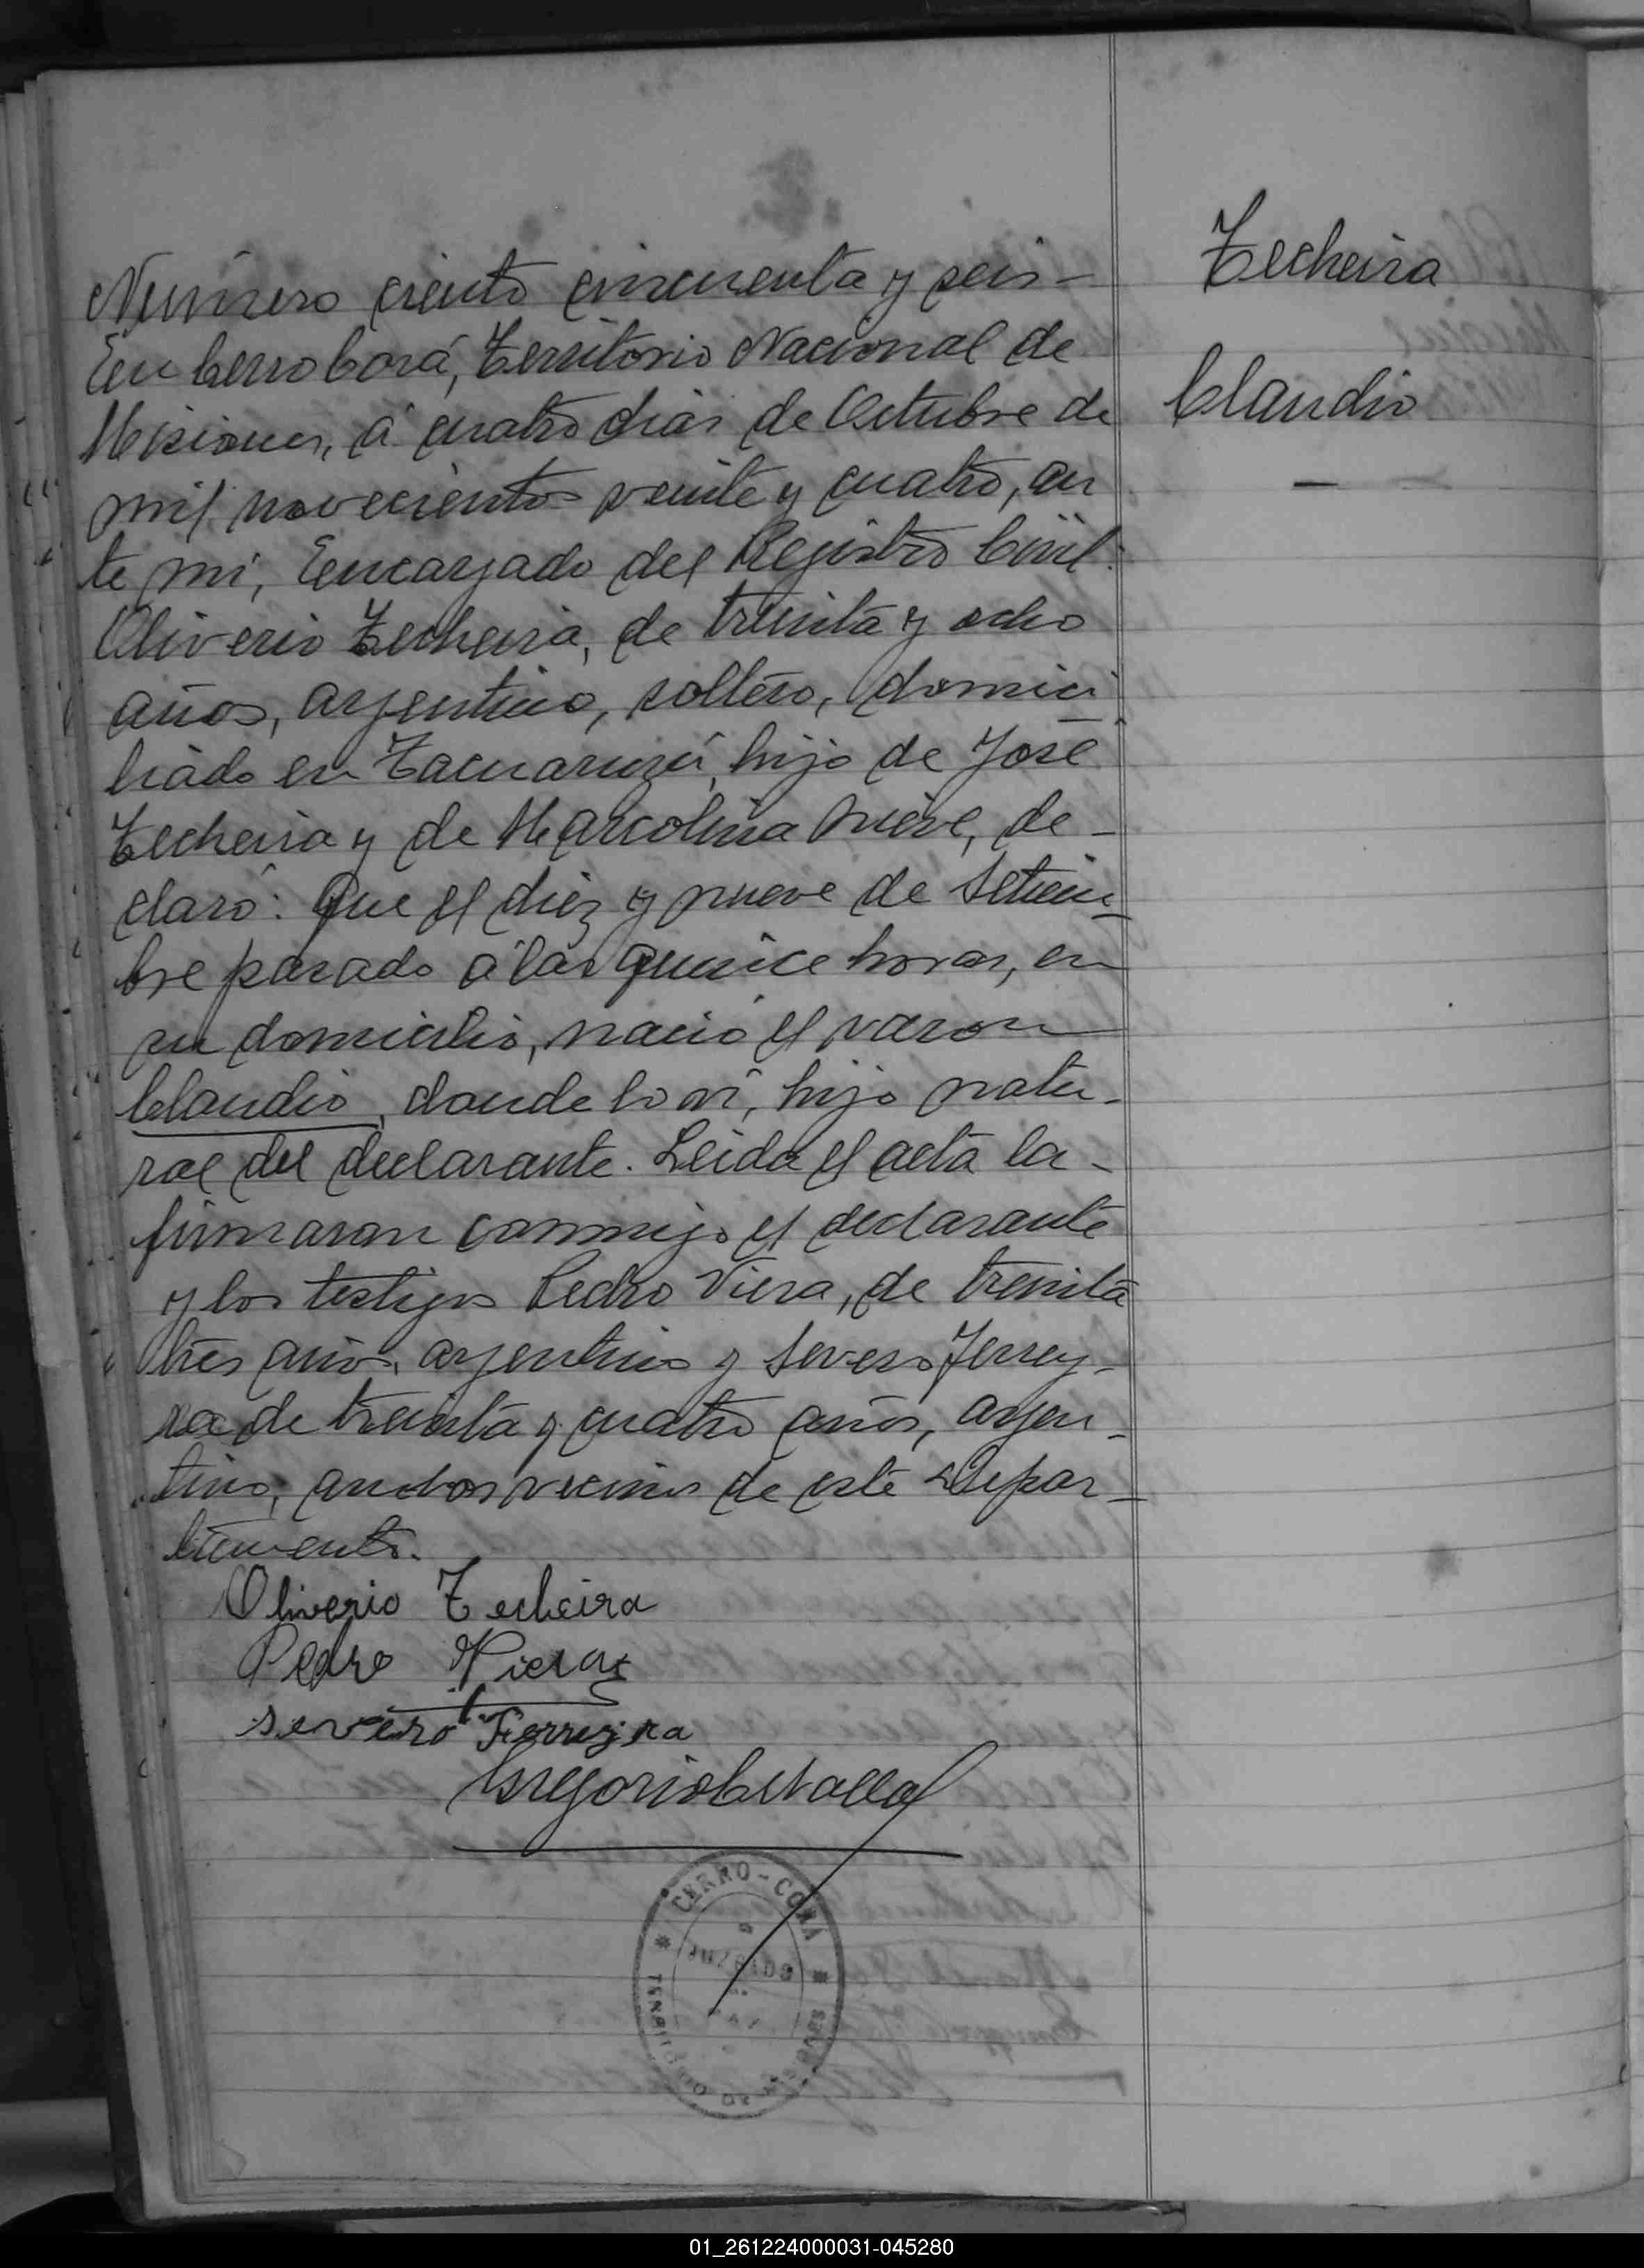 Número ciento cincuenta y seis –
En Cerro Corá, Territorio Nacional de
Misiones, á cuatro dias de Octubre de
mil novecientos veinte y cuatro, an
te mi, Encargado del Registro Civil:
Oliverio Techeira, de treinta y ocho
años, argentino, soltero, domici
liado en Tacuaruzú, hijo de José
Techeira y de Marcolina de –
claró: Que el diez y nueve de Setiem–
bre pasado á las quince horas, en
su domicilio, nació el varon
Claudio, donde lo ví, hijo natu-
ral del declarante. Leida el acta la –
firmaron conmigo el declarante
y los testigos Pedro Viera, de treinta
tres años, argentino y Severo Ferrey-
ra de treinta y cuatro años, argen –
tino, ambos vecinos de este Depar –
tamento.
Oliverio Techeira
Pedro Viera
severo Ferreyra
Gregorio
Techeira
Claudio
—
CERRO-CORA
JUZGADO
TERRITORIO DE MISIONES
01_261224000031-045280